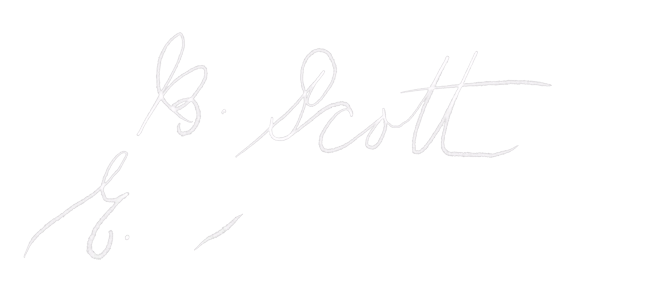 B. Scott
E.